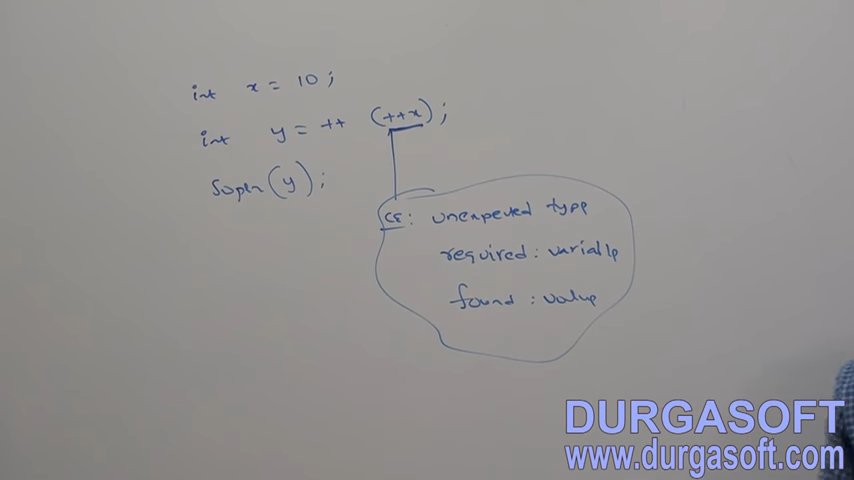 int x = 10;
int y = ++ (++x);
Sopln(y);
CE: unexpected type
required: variable
found: value
DURGASOFT
www.durgasoft.com